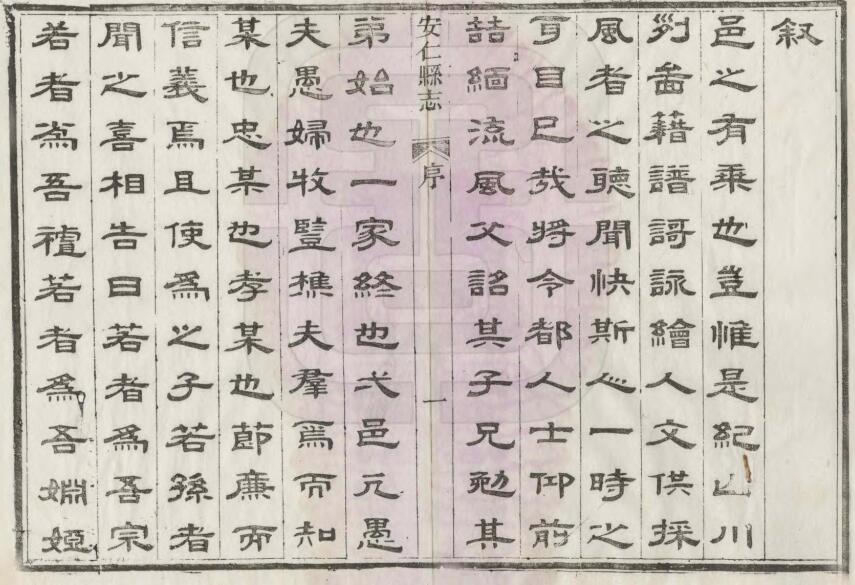 叙
邑之有乗也豈惟是紀山川
列啚籍譜謌詠繪人文供採
風者之聽聞快斯心一時之
耳目已哉將令都人士仰前
喆緬流風父詔其子兄勉其
安仁縣志 序 一
弟始也一家終也弌邑凢愚
夫愚婦牧豎樵夫羣焉而知
某也忠某也孝某也節廉而
信義焉且使爲之子若孫者
聞之喜相告曰若者爲吾宗
若者爲吾若者爲吾婣婭